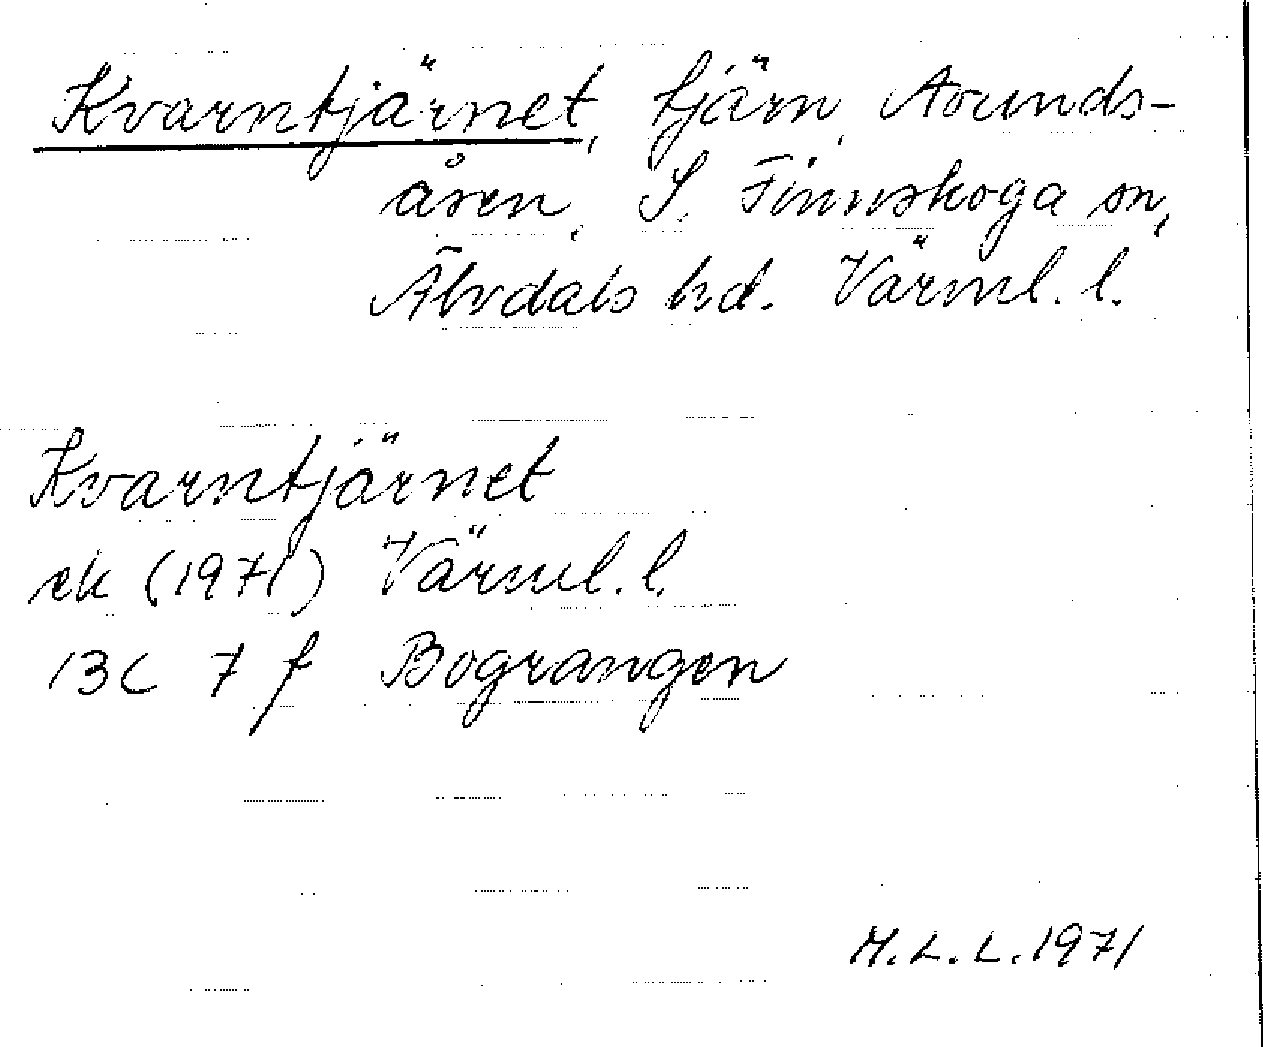 Kvarntjärnet, tjärn, Asunds-
åsen, S. Finnskoga sn,
Älvdals hd. Värml. l.
Kvarntjärnet
ek (1971) Värml. l.
13C 7 f Bograngen
M.L.L. 1971